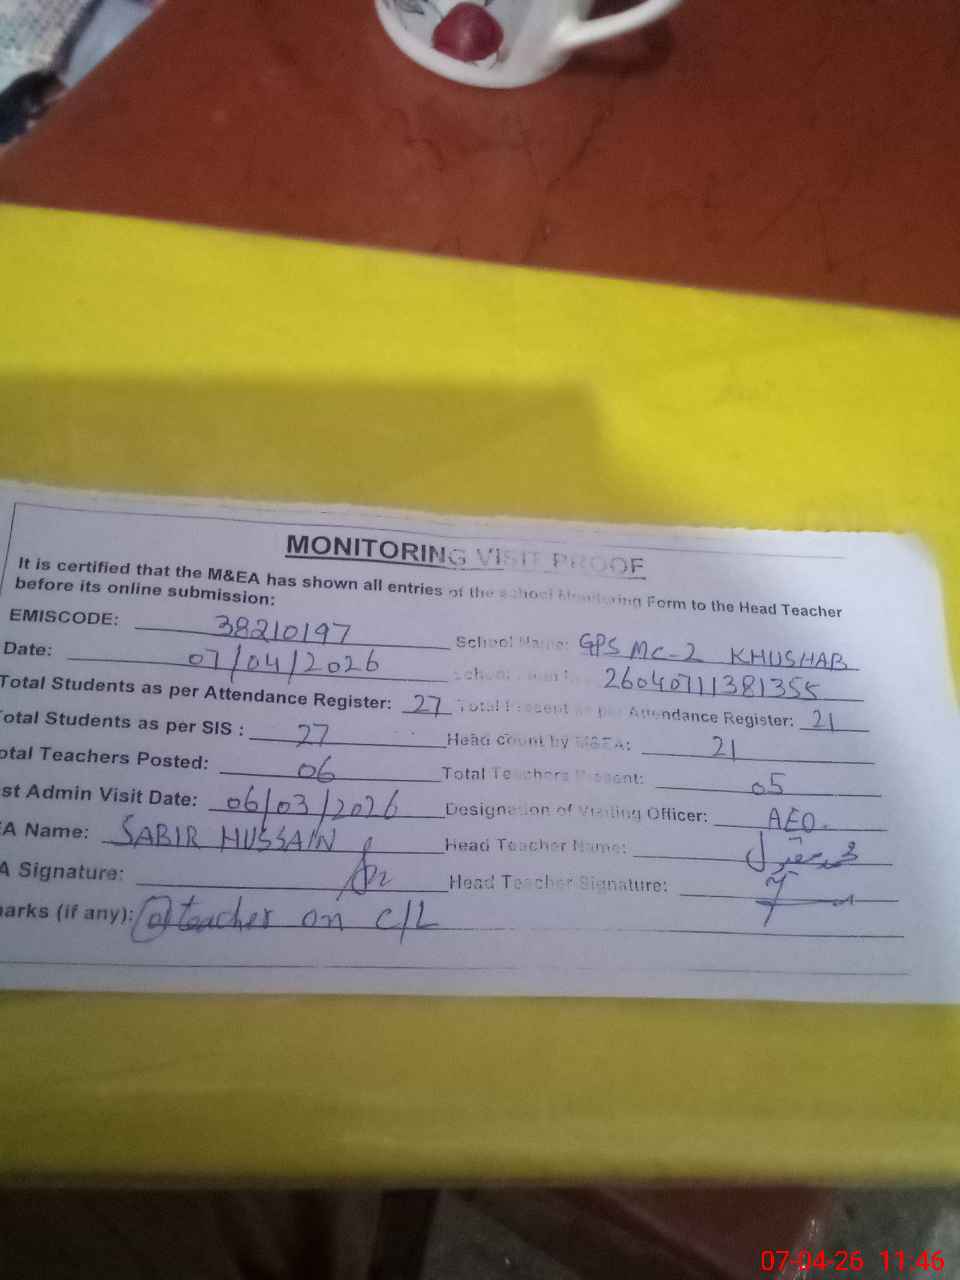 MONITORING VISIT PROOF
It is certified that the M&EA has shown all entries of the school Monitoring Form to the Head Teacher
before its online submission:
EMISCODE: 38210197 School Name: GPS MC-2 KHUSHAB
Date: 07/04/2026 26040711381355
Total Students as per Attendance Register: 27 Total Present as per Attendance Register: 21
otal Students as per SIS : 27 Head count by M&EA: 21
otal Teachers Posted: 06 Total Teachers Present: 05
st Admin Visit Date: 06/03/2026 Designation of Visiting Officer: AEO.
EA Name: SABIR HUSSAIN Head Teacher Name:
A Signature: Head Teacher Signature:
narks (if any): 01 teacher on c/L
07-04-26 11:46